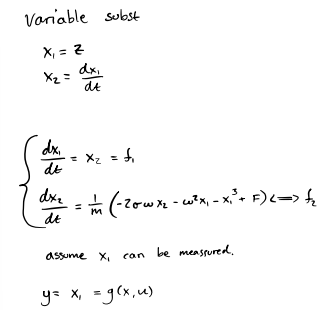 Variable subst
x₁ = z
x₂ = dx₁/dt
dx₁/dt = x₂ = f₁
dx₂/dt = 1/m (-2σωx₂ - ω²x₁ - x₁³ + F) <=> f₂
assume x₁ can be measured.
y = x₁ = g(x, u)